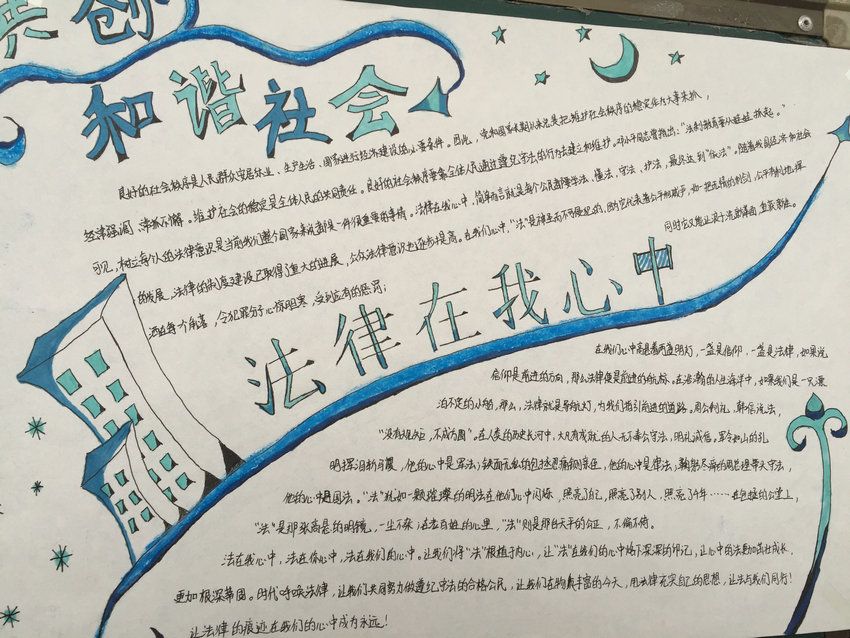 共创
和谐社会
良好的社会秩序是人民群众安居乐业、生产生活、国家进行经济建设的必要条件。因此,党和国家长期以来总是把维护社会秩序的稳定作为大事来抓,
经津强调、常抓不懈。维护社会的稳定是全体人民的共同责任。良好的社会秩序要靠全体人民通过遵纪守法的行为去建立和维护。邓小平同志曾指出:“法制教育要从娃娃抓起。”
可见,树立每个人的法律意识是当前我们整个国家来说都是一件很重要的事情。法律在我心中,简单而言就是每个公民都懂学法、懂法、守法、护法,最终达到“依法”。随着我国经济和社会
的发展,法律的制度建设已取得了重大的进展,公众法律意识也逐步提高。在我们心中,“法”是神圣而不可侵犯的,同时它代表着公平和威严,如一把无情的利剑,公平有利地挥
洒在每个角落,令犯罪分子心惊胆寒,受到应有的惩罚;
同时它又能让
法律在我心中
在我们心中高悬着两盏明灯,一盏是信仰,一盏是法律,如果说
信仰是前进的方向,那么法律便是前进的航标。在浩瀚的人生海洋中,如果我们是一只漂
泊不定的小船,那么,法律就是导航灯,为我们指引前进的道路。周公制礼,韩信说法,
“没有规矩,不成方圆”。在人类的历史长河中,大凡有成就的人无不奉公守法,明礼诚信。军令如山的孔
明挥泪斩马谡,他的心中是军法;铁面无私的包拯忍痛铡亲侄,他的心中是律法,鞠躬尽瘁的周总理带头守法,
他的心中是国法。“法”犹如一颗璀璨的明法在他们心中闪烁,照亮了自己,照亮了别人,照亮了千年……在包拯的公堂上,
“法”是那张高悬的明镜,一尘不染;在老百姓的心里,“法”则是那台天平的公正,不偏不倚。
法在我心中,法在你心中,法在我们的心中。让我们将“法”根植于内心,让“法”在我们的心中烙下深深的印记,让心中的法更加茁壮成长,
更加根深蒂固。时代呼唤法律,让我们共同努力做遵纪守法的合格公民,让我们在物质丰富的今天,用法律充实自己的思想,让法与我们同行!
让法律的痕迹在我们的心中成为永远!